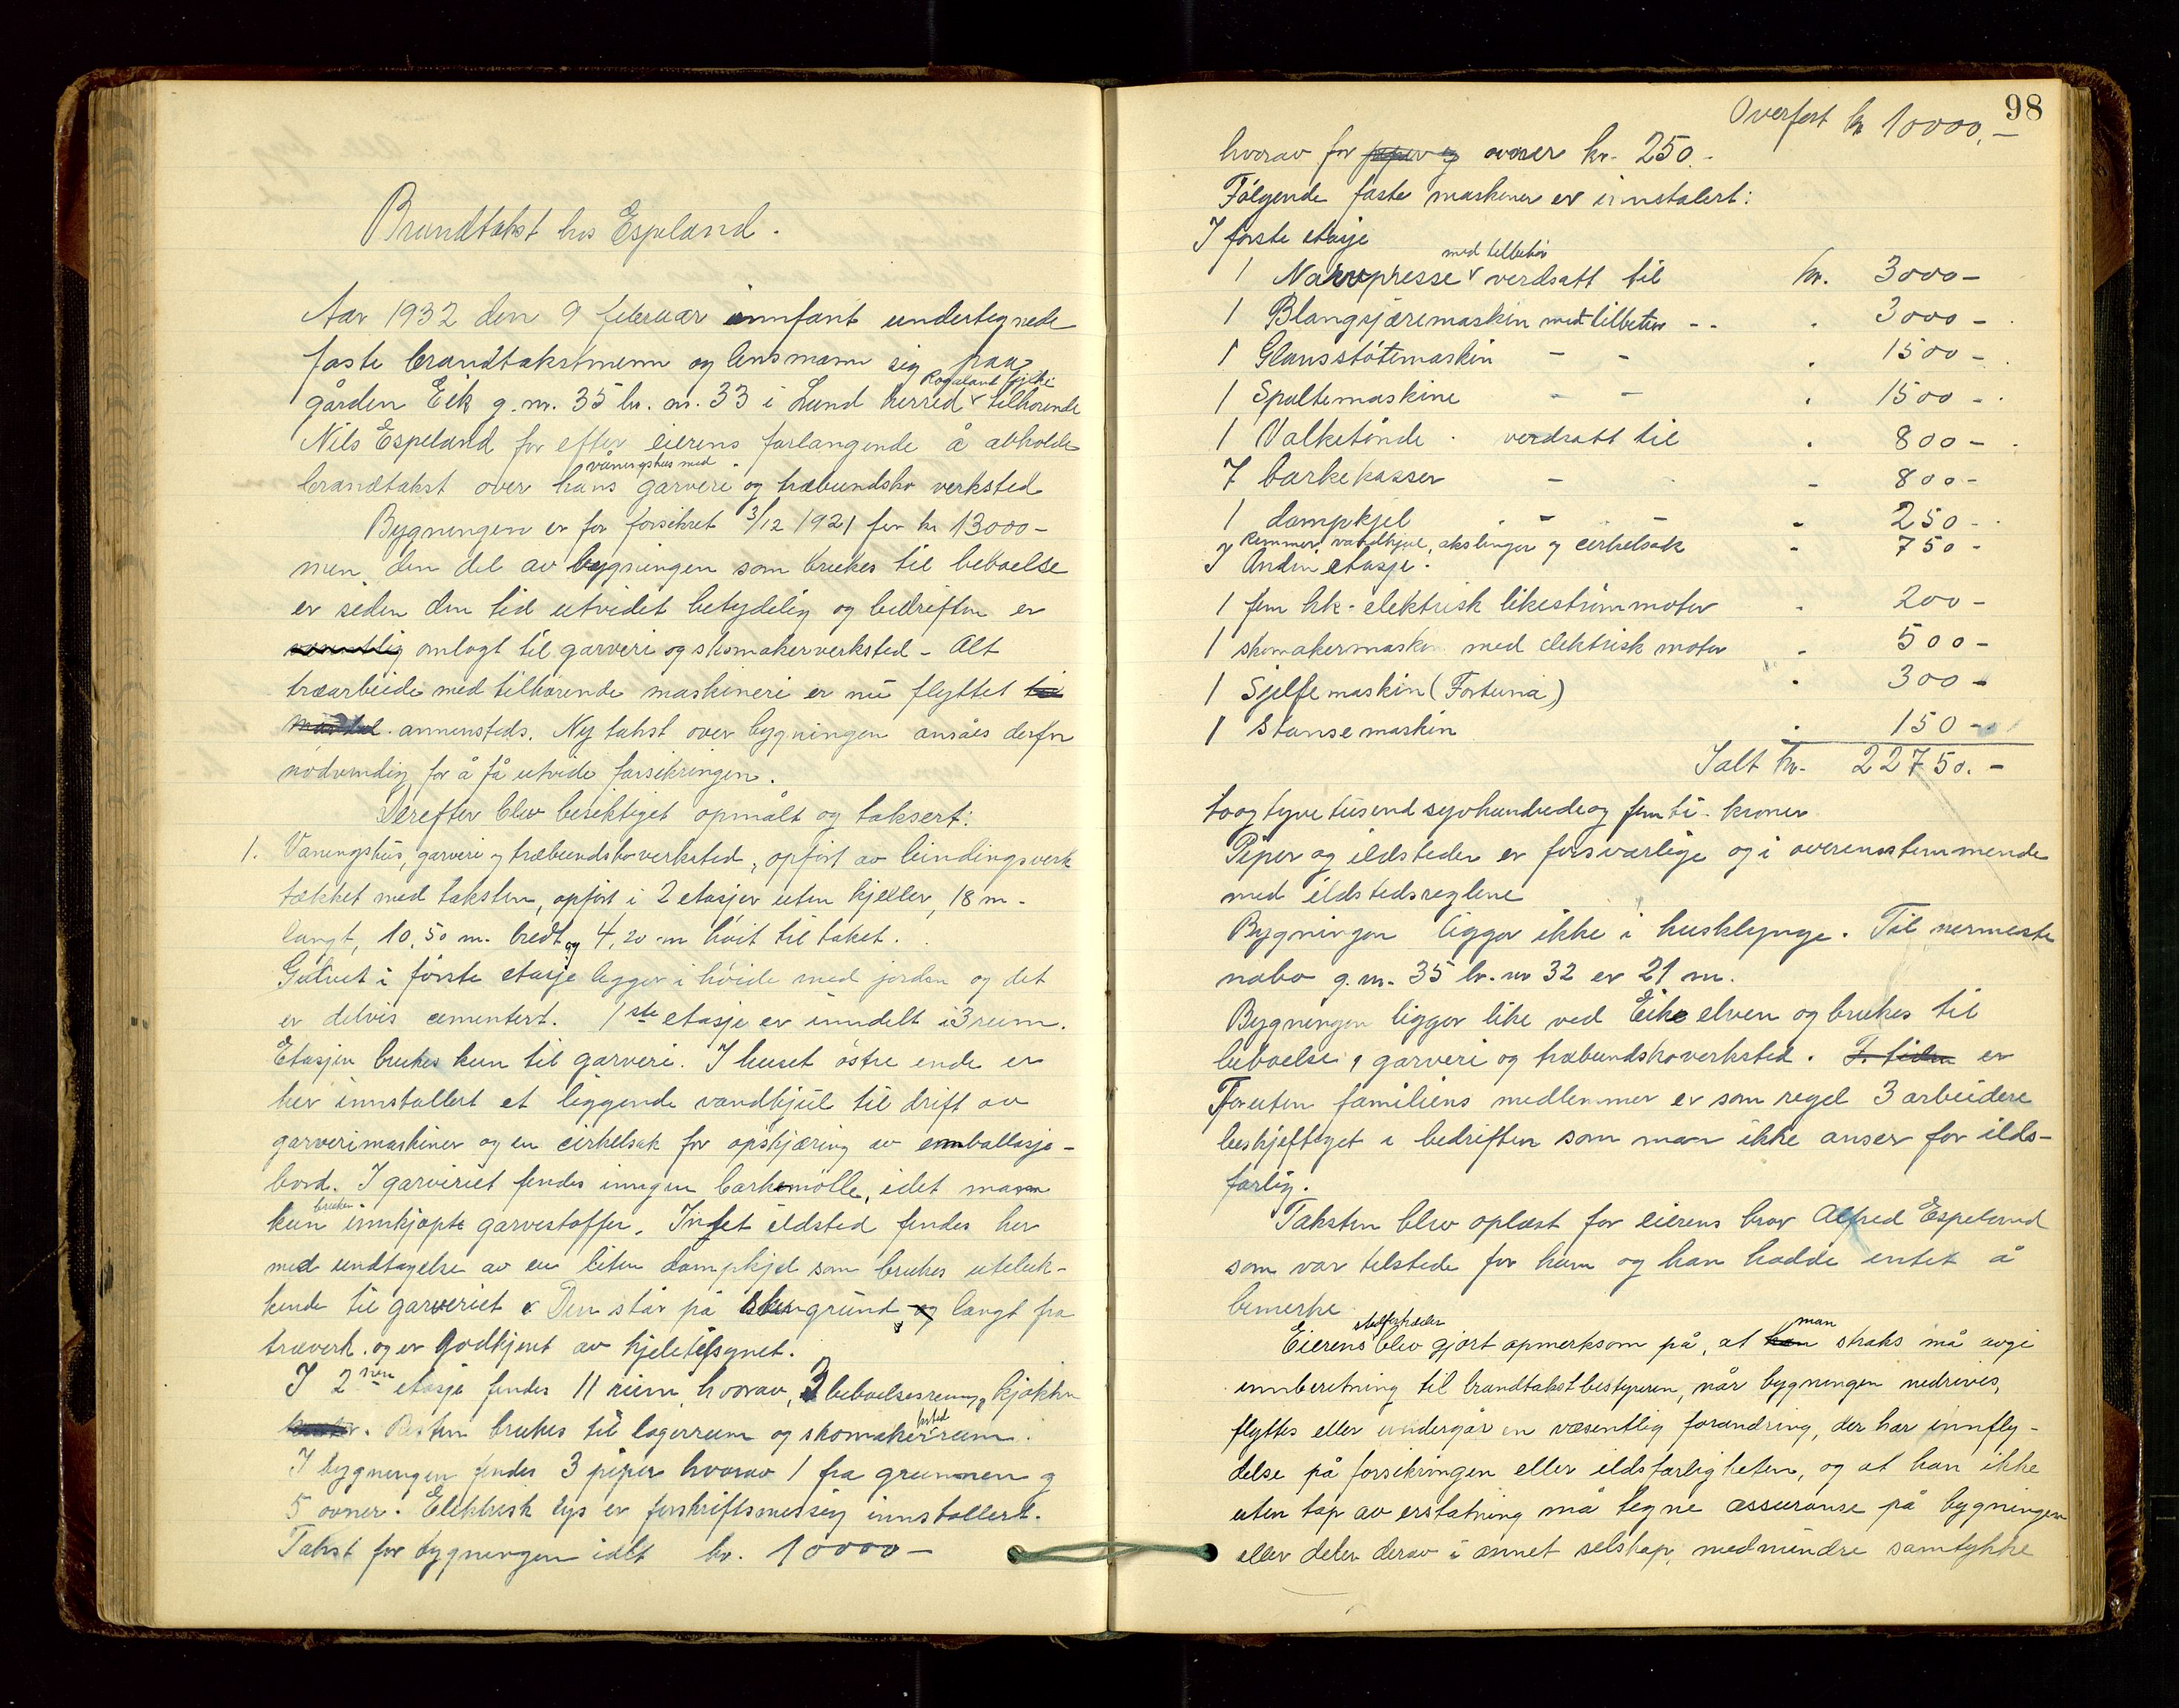 Brandtakst hos Espeland.
Aar 1932 den 9 februar innfant undertegnede
faste brandtakstmenn og lensmann sig paa
gården Eik g. nr. 35 br. nr. 33 i Lund herred Rogaland fylke tilhørende
Nils Espeland for efter eierens forlangende å avholde
brandtakst over hans våningshus med garveri og træbundsko verksted
Bygningen er før forsikret 3/12 1921 for kr 13000-
men den del av bygningen som brukes til beboelse
er siden den tid utvidet betydelig og bedriften er
omlagt til garveri og skomakerverksted - Alt
træarbeide med tilhørende maskineri er nu flyttet
annensteds. Ny takst over bygningen ansåes derfor
nødvendig for å få utvide forsikringen.
Derefter blev besiktiget opmålt og taksert:
1. Vaningshus, garveri og træbundskoverksted, opført av bindingsverk
tækket med taksten, opført i 2 etasjer uten kjeller, 18 m.
langt, 10,50 m. bredt og 4,20 m høit til taket.
Gulvet i første etasje ligger i høide med jorden og det
er delvis cementert. 1ste etasje er inndelt i 3 rum.
Etasjen brukes kun til garveri. I huset østre ende er
her innstallert et liggende vandhjul til drift av
garverimaskiner og en cirkelsak for opskjæring av emballasje-
bord. I garveriet findes ingen barkemølle, idet man
kun bruker innkjøpte garvestoffer. Intet ildsted findes her
med undtagelse av en liten dampkjel som brukes uteluk-
kende til garveriet. Den står på stengrund og langt fra
træverk. og er Godkjent av kjeletilsynet.
I 2nen etasje findes 11 rum hvorav 3 beboelsesrum, kjøkken
Resten brukes til lagerrum og skomakerverksted rum.
I bygningen findes 3 piper hvorav 1 fra grunnen og
5 ovner. Elektrisk lys er forskriftsmessig innstallert.
Takst for bygningen ialt kr. 10000-
98
Overført kr 10000,-
hvorav for piper og ovner kr. 250.-
Følgende faste maskiner er innstalert:
I første etasje
1 Narvpresse med tilbehør verdsatt til kr. 3000-
1 Blangsjæremaskin med tilbehør - - . 3000-
1 Glansstøtemaskin - - . 1500-
1 Spaltemaskine - - . 1500-
1 Valketønde . verdsatt til . 800-
7 barkekasser - - 800-
1 dampkjel - - - 250-
Remmer, vandhjul, akslinger og cirkelsak - 750-
I Anden etasje.
1 fem hk. elektrisk likestrømmotor - 200-
1 skomakermaskin med elektrisk motor - 500-
1 Sjelfemaskin (Fortuna) - 300-
1 Stansemaskin . 150-
Ialt kr. 22750.-
toogtyve tusend syvhundredeog femti. kroner
Piper og ildsteder er forsvarlige og i overensstemmende
med ildstedsreglene
Bygningen ligger ikke i husklynge. Til nermeste
nabo g. nr. 35 br. nr 32 er 21 m.
Bygningen ligger like ved Eike elven og brukes til
beboelse, garveri og træbundskoverksted. F. tiden er
Foruten familiens medlemmer er som regel 3 arbeidere
beskjeftiget i bedriften som man ikke anser for ilds-
farlig.
Taksten blev oplæst for eierens bror Alfred Espeland
som var tilstede for ham og han hadde intet å
bemerke
Eierens stedfortreder blev gjort opmerksom på, at han man straks må avgi
innberetning til brandtakstbestyreren, når bygningen nedrives,
flyttes eller undergår en væsentlig forandring, der har innfly-
delse på forsikringen eller ildsfarligheten, og at han ikke
uten tap av erstatning må tegne assuranse på bygningen
eller deler derav i annet selskap, medmindre samtykke